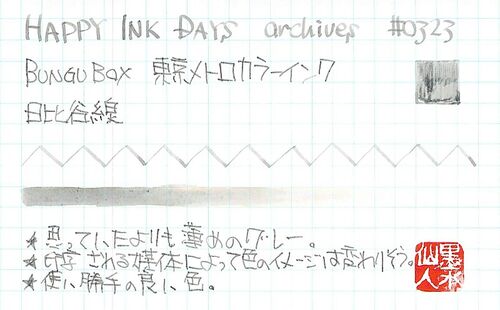 HAPPY INK DAYS archives #0323
BUNGUBOX 東京メトロカラーインク
日比谷線
★思っていたよりも薄めのグレー。
★印字される媒体によって色のイメージは変わりそう。
★使い勝手の良い色。
墨水仙人